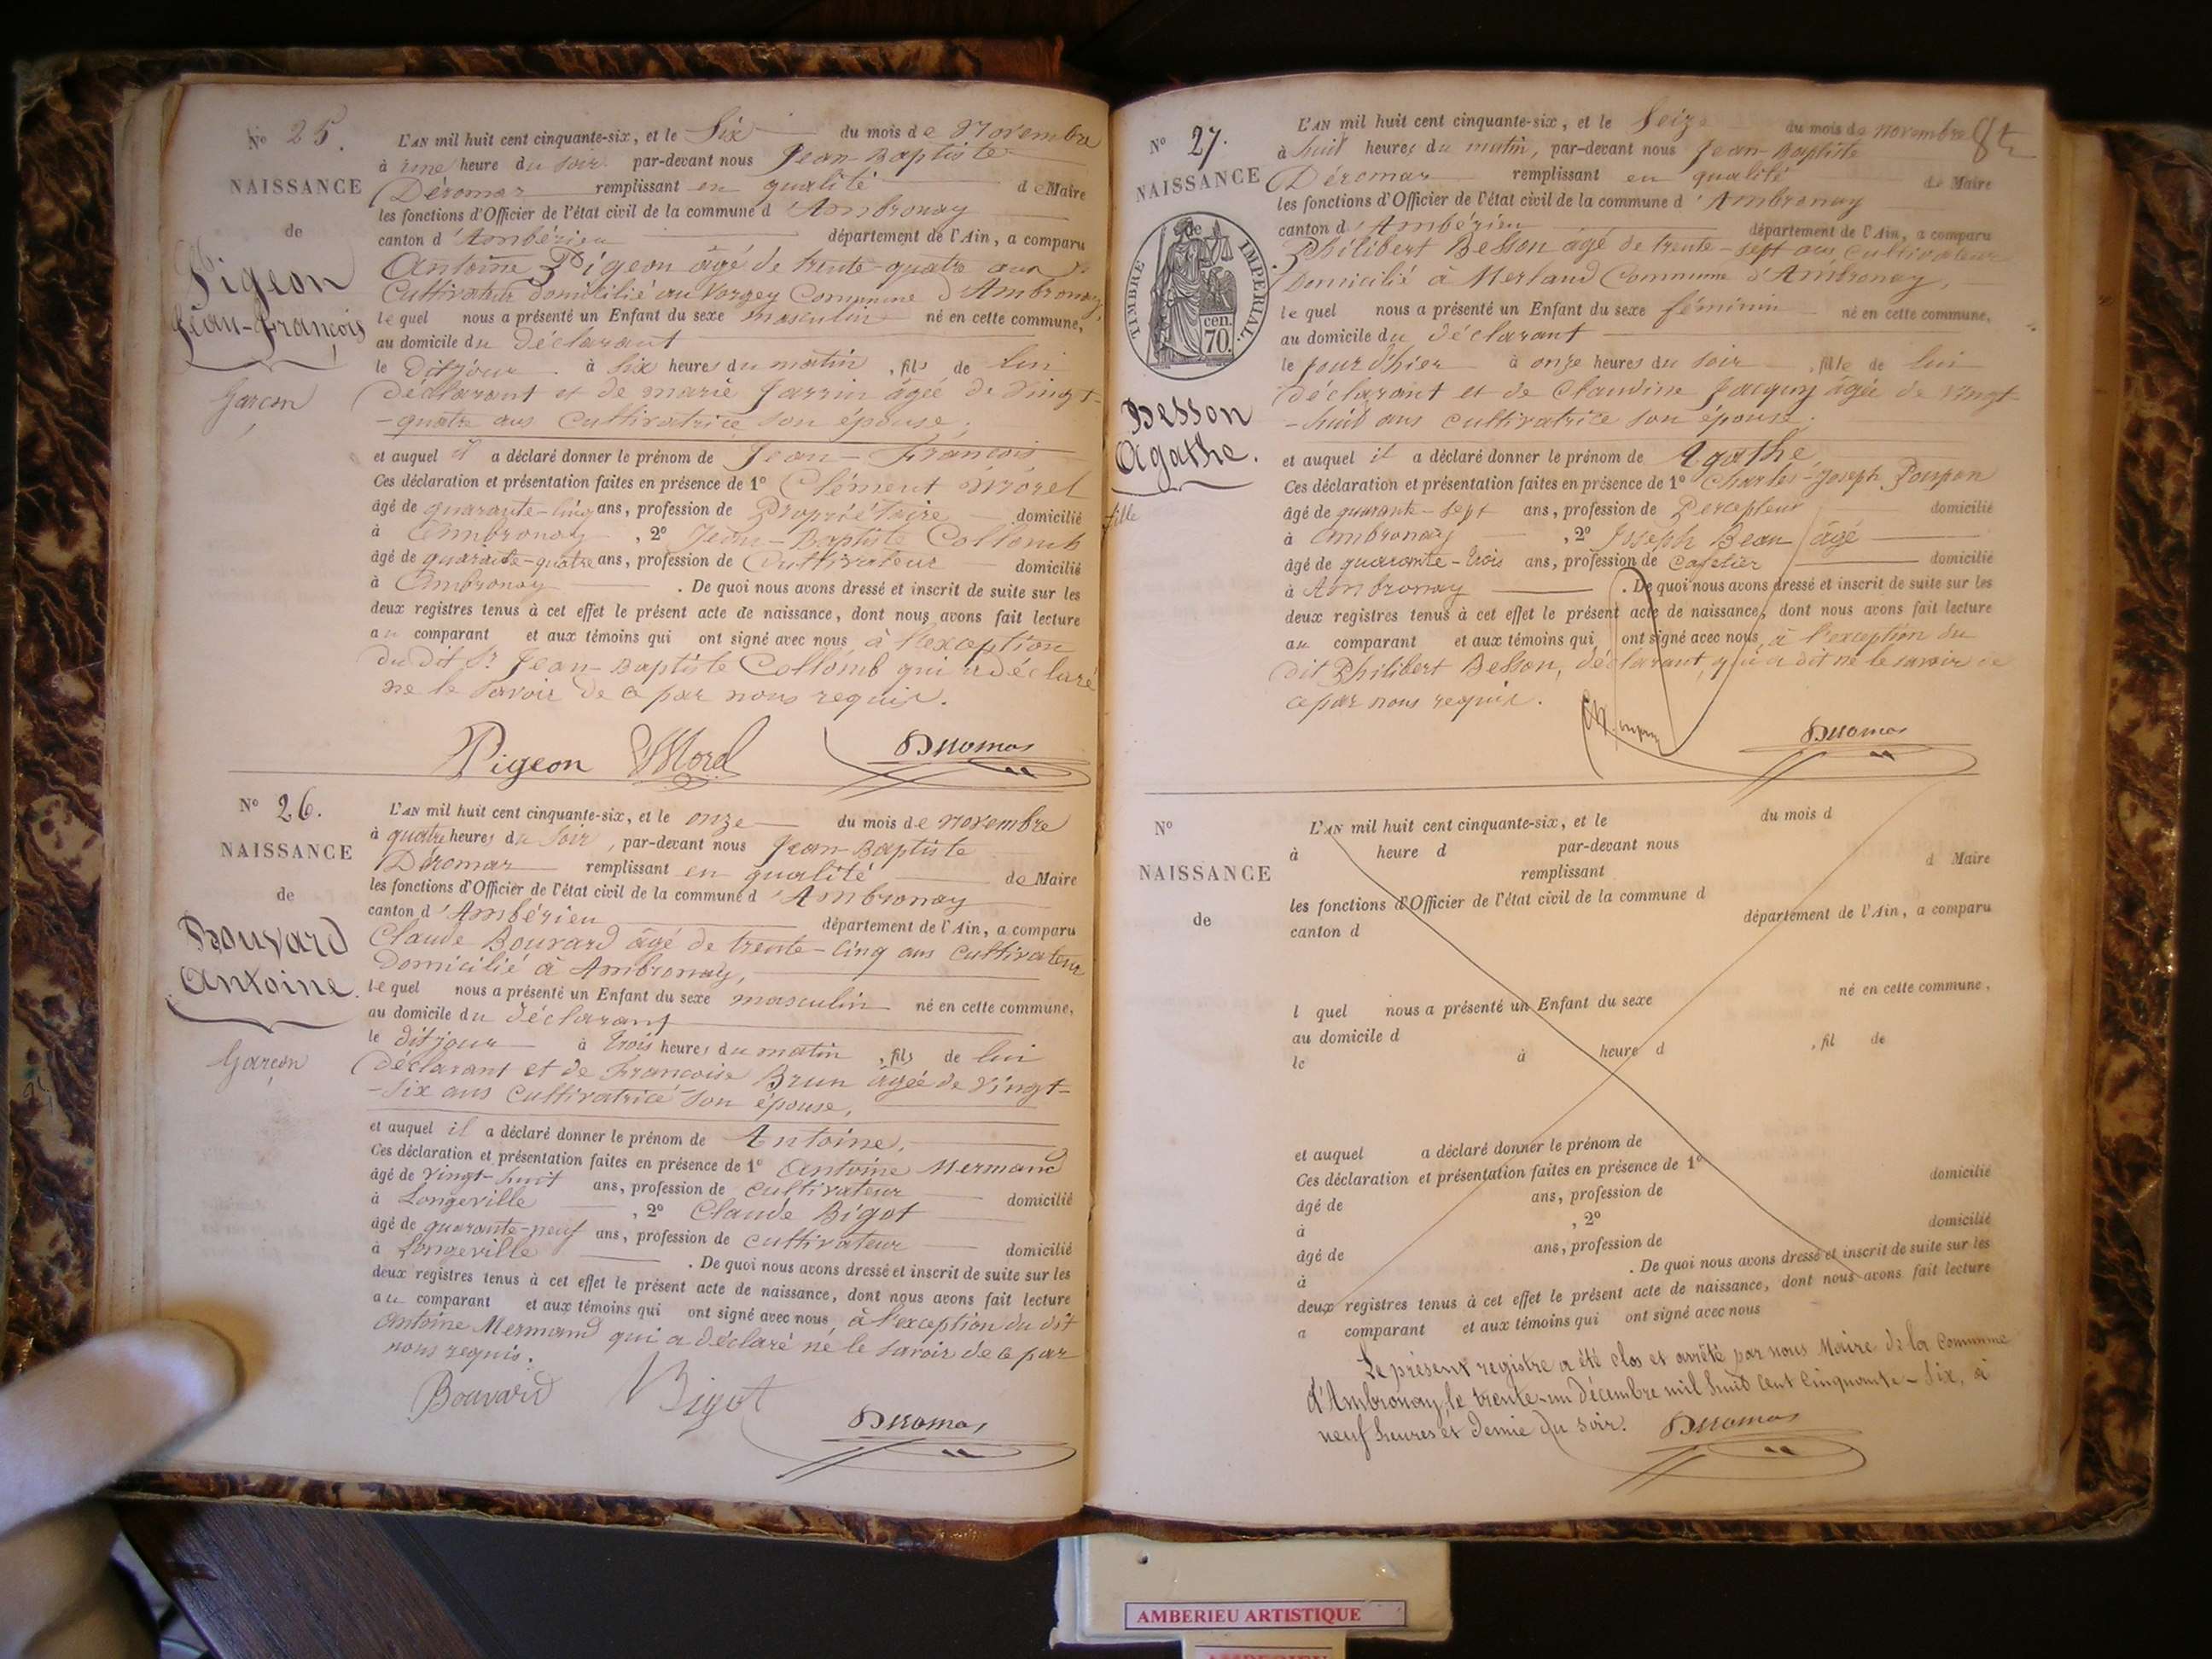 N° 25.
NAISSANCE
de
Pigeon
Jean-François
Garçon
L'AN mil huit cent cinquante-six, et le Six du mois de Novembre
à une heure du soir par-devant nous Jean-Baptiste
Déromas remplissant en qualité de Maire
les fonctions d'Officier de l'état civil de la commune d'Ambronay
canton d'Ambérieu département de l'Ain, a comparu
Antoine Pigeon âgé de trente-quatre ans
Cultivateur domicilié au Vorgey Commune d'Ambronay,
lequel nous a présenté un Enfant du sexe masculin né en cette commune,
au domicile du déclarant
le dit jour à six heures du matin, fils de lui
déclarant et de marie Jarrin âgée de vingt-
-quatre ans cultivatrice son épouse,
et auquel il a déclaré donner le prénom de Jean-François
Ces déclaration et présentation faites en présence de 1° Clément Morel
âgé de quarante-cinq ans, profession de Propriétaire domicilié
à Ambronay, 2° Jean-Baptiste Collomb
âgé de quarante-quatre ans, profession de Cultivateur domicilié
à Ambronay. De quoi nous avons dressé et inscrit de suite sur les
deux registres tenus à cet effet le présent acte de naissance, dont nous avons fait lecture
au comparant et aux témoins qui ont signé avec nous à l'exception
du dit Sr Jean-Baptiste Collomb qui a déclaré
ne le savoir de ce par nous requis.
Pigeon Morel Deromas
N° 26.
NAISSANCE
de
Bouvard
Antoine.
Garçon
L'AN mil huit cent cinquante-six, et le onze du mois de novembre
à quatre heures du soir, par-devant nous Jean-Baptiste
Déromas remplissant en qualité de Maire
les fonctions d'Officier de l'état civil de la commune d'Ambronay
canton d'Ambérieu département de l'Ain, a comparu
Claude Bouvard âgé de trente-cinq ans cultivateur
Domicilié à Ambronay,
lequel nous a présenté un Enfant du sexe masculin né en cette commune,
au domicile du déclarant
le dit jour à trois heures du matin, fils de lui
déclarant et de Françoise Brun âgée de vingt-
-six ans Cultivatrice son épouse,
et auquel il a déclaré donner le prénom de Antoine,
Ces déclaration et présentation faites en présence de 1° Antoine Mermand
âgé de vingt-huit ans, profession de cultivateur domicilié
à Longeville, 2° Claude Bigot
âgé de quarante-neuf ans, profession de cultivateur domicilié
à Longeville. De quoi nous avons dressé et inscrit de suite sur les
deux registres tenus à cet effet le présent acte de naissance, dont nous avons fait lecture
au comparant et aux témoins qui ont signé avec nous à l'exception du dit
Antoine Mermand qui a déclaré ne le savoir de ce par
nous requis.
Bouvard Bigot Deromas
N° 27.
NAISSANCE
de
TIMBRE IMPERIAL.
70. cen.
Besson
Agathe.
fille
L'AN mil huit cent cinquante-six, et le Seize du mois de novembre
à huit heures du matin, par-devant nous Jean-Baptiste
Déromas remplissant en qualité de Maire
les fonctions d'Officier de l'état civil de la commune d'Ambronay
canton d'Ambérieu département de l'Ain, a comparu
Philibert Besson âgé de trente-sept ans, Cultivateur
Domicilié à Merland Commune d'Ambronay,
lequel nous a présenté un Enfant du sexe féminin né en cette commune,
au domicile du déclarant
le jour d'hier à onze heures du soir, fille de lui
déclarant et de Claudine Jacquy âgée de vingt
-huit ans cultivatrice son épouse;
et auquel il a déclaré donner le prénom de Agathe,
Ces déclaration et présentation faites en présence de 1° Charles-Joseph Poupon
âgé de quarante-sept ans, profession de Percepteur domicilié
à Ambronay, 2° Joseph Beau âgé
âgé de quarante-trois ans, profession de cafetier domicilié
à Ambronay. De quoi nous avons dressé et inscrit de suite sur les
deux registres tenus à cet effet le présent acte de naissance, dont nous avons fait lecture
au comparant et aux témoins qui ont signé avec nous à l'exception du
dit Philibert Besson, déclarant, qui a dit ne le savoir de
ce par nous requis.
Deromas
N°
NAISSANCE
de
L'AN mil huit cent cinquante-six, et le du mois d
à heure d par-devant nous
remplissant d Maire
les fonctions d'Officier de l'état civil de la commune d
canton d département de l'Ain, a comparu
l quel nous a présenté un Enfant du sexe né en cette commune,
au domicile d
le à heure d, fil de
et auquel a déclaré donner le prénom de
Ces déclaration et présentation faites en présence de 1°
âgé de ans, profession de domicilié
à, 2°
âgé de ans, profession de domicilié
à. De quoi nous avons dressé et inscrit de suite sur les
deux registres tenus à cet effet le présent acte de naissance, dont nous avons fait lecture
a comparant et aux témoins qui ont signé avec nous
Le présent registre a été clos et arrêté par nous Maire de la Commune
d'Ambronay, le trente-un décembre mil huit cent cinquante-six, à
neuf heures et demie du soir. Deromas
AMBERIEU ARTISTIQUE
AMBERIEU